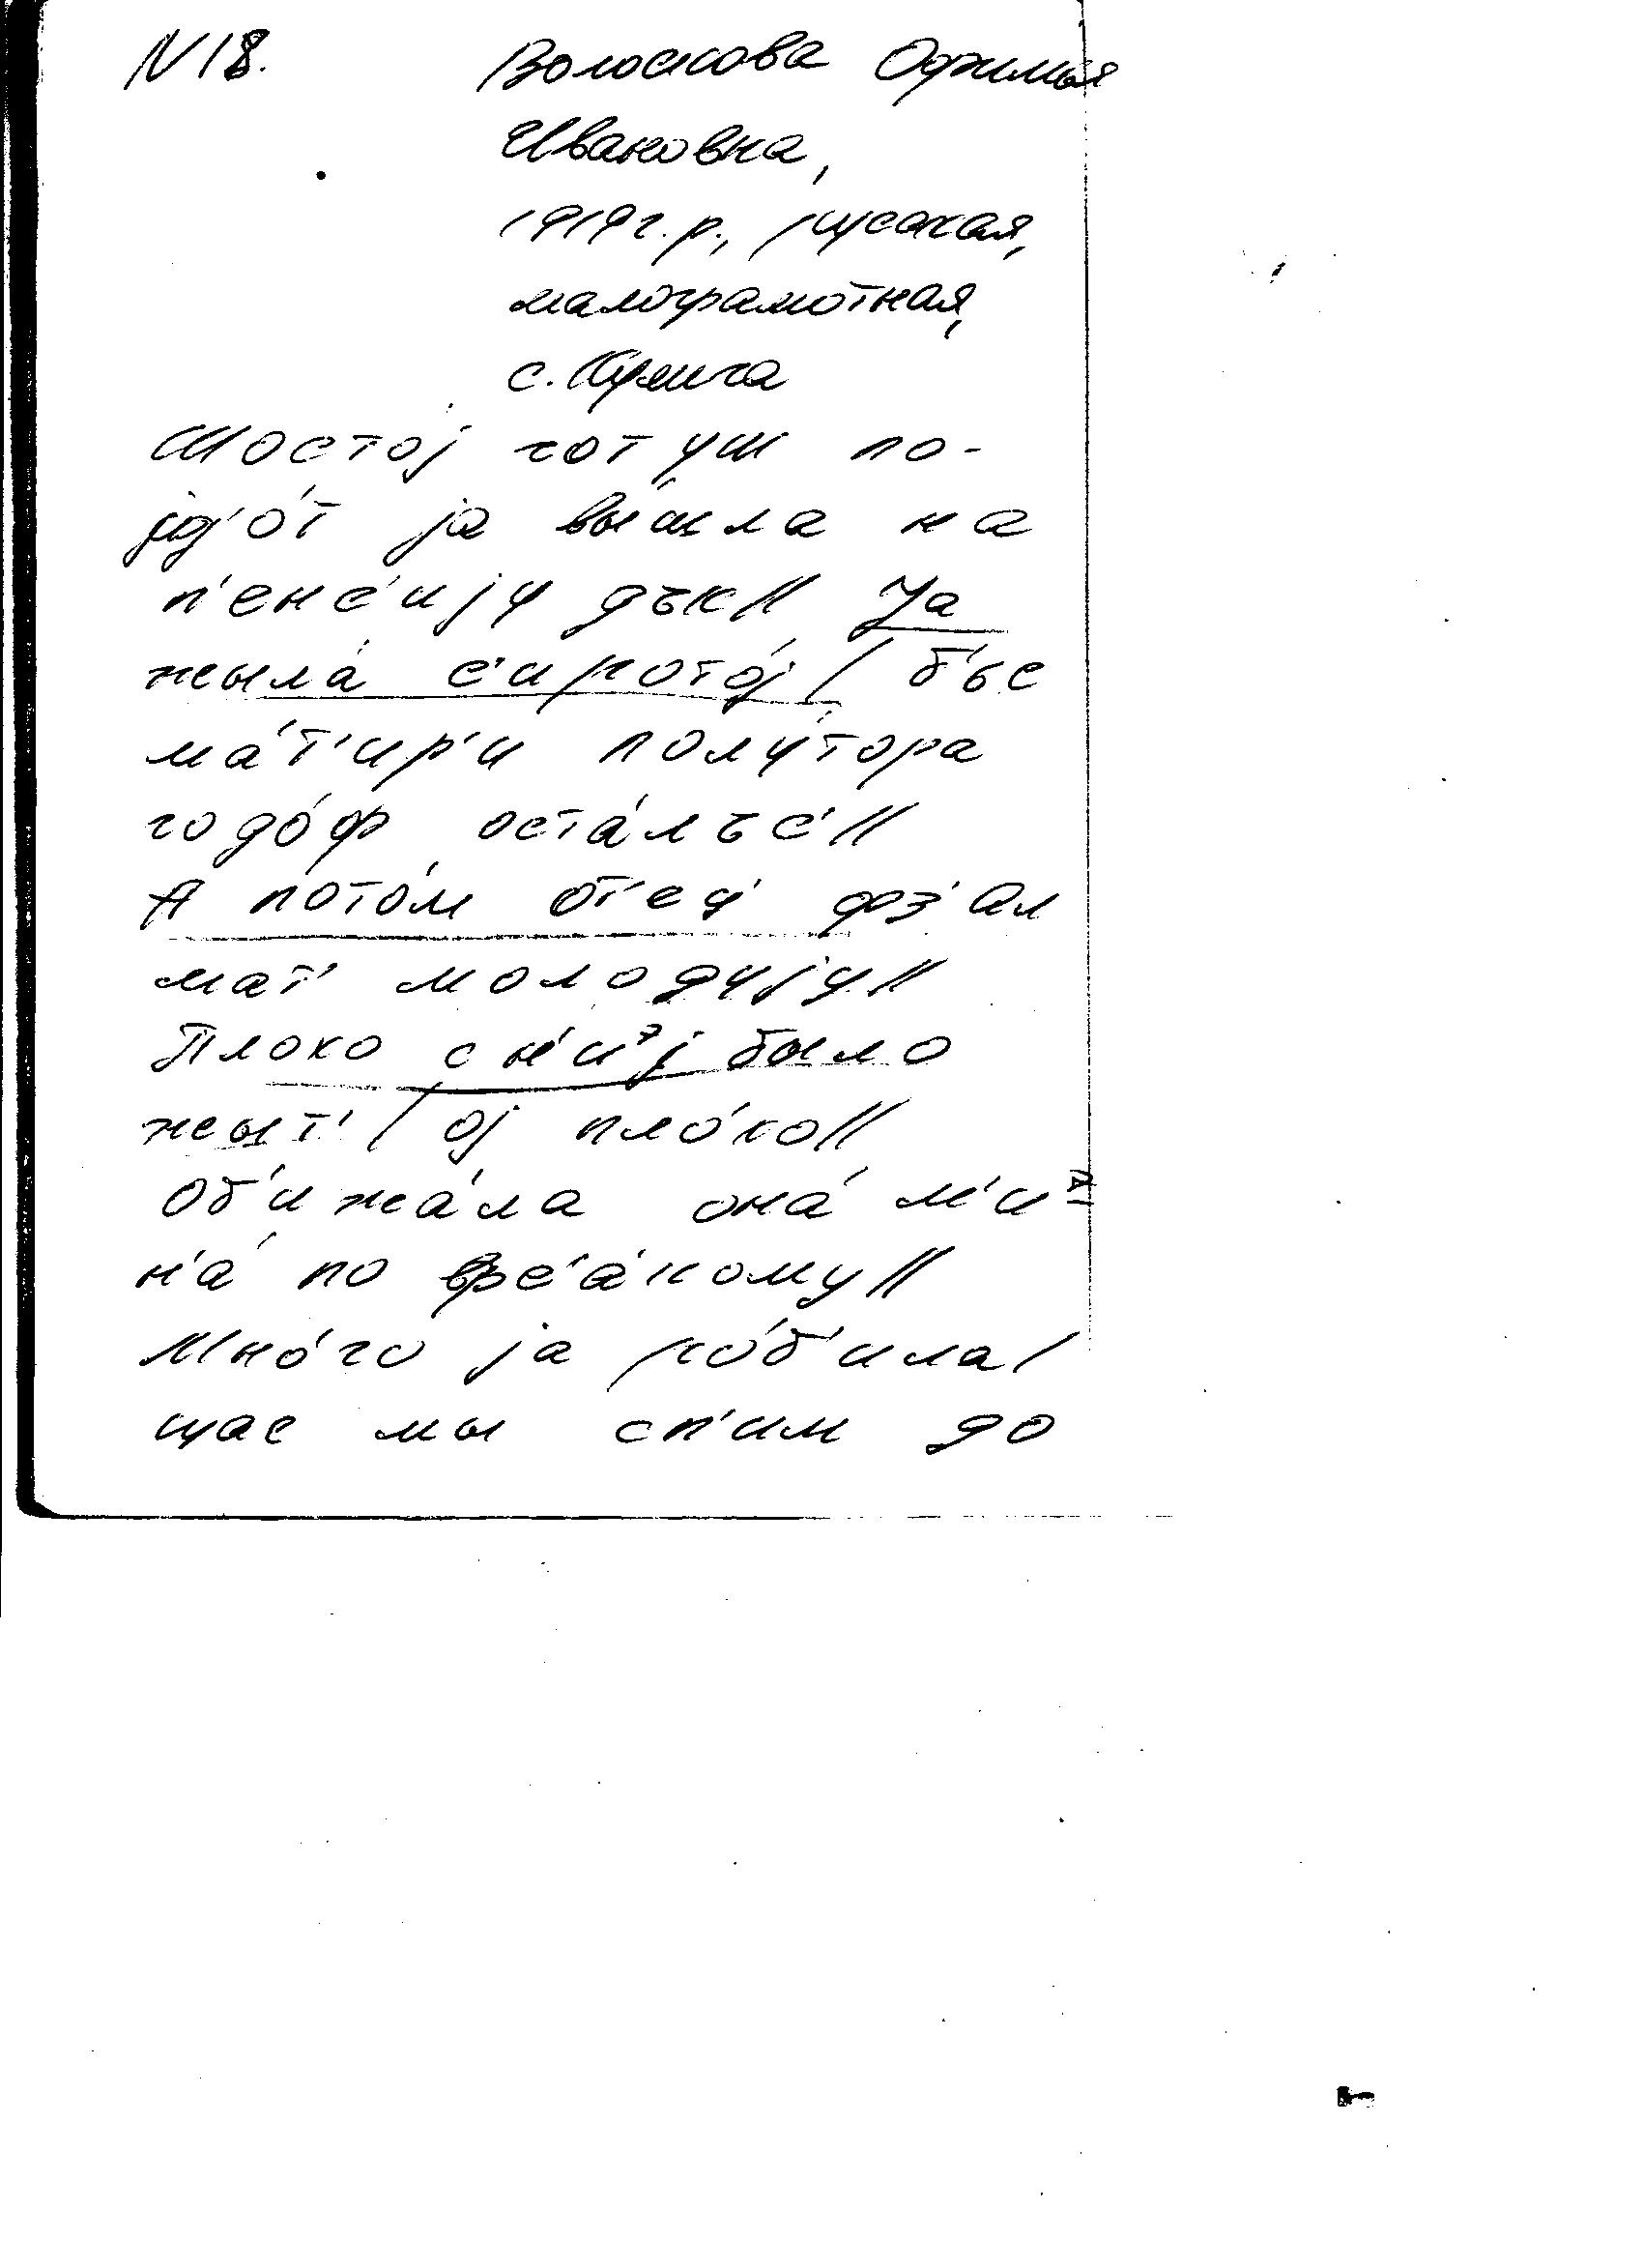 N18. Волоскова Офимья
Ивановна,
1919 г.р., русская,
малограмотная,
с. Кулига
Шостој гот уш по-
јд'о́т ја вы́шла на
п'е́нс'ију дък// Ја
жыла́ с'ирото́ј/ б'ьс
ма́т'ир'и полу́тора
годо́ф оста́лъс'//
А пото́м от'ец фз'ал
мат' молоду́ју//
Плоко с н'иэј было
жыт'/ ој пло́ко//
Об'ижа́ла она́ м'и
н'а́ по фс'а́кому//
Мно́го ја ро́б'ила/
щас мы сп'им до